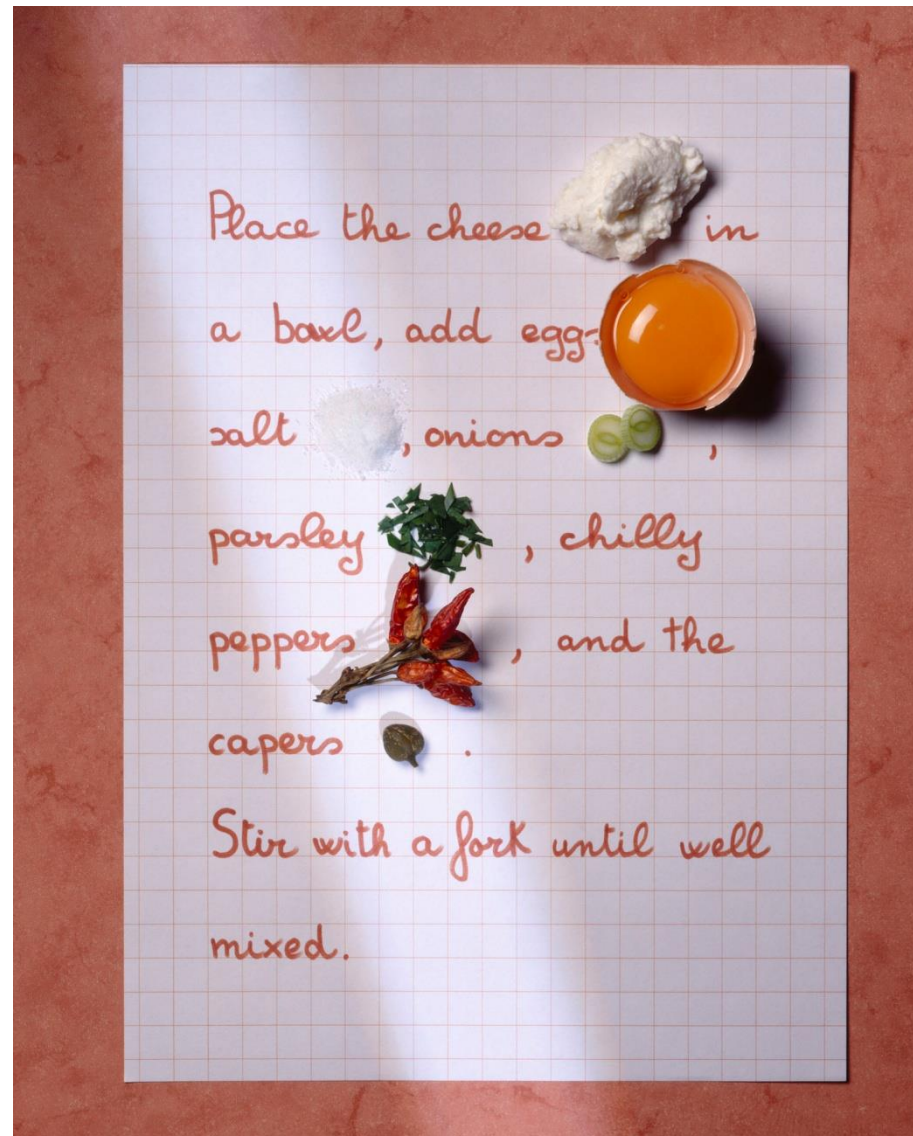 Place the cheese in
a bowl, add egg
salt , onions ,
parsley , chilly
peppers , and the
capers .
Stir with a fork until well
mixed.